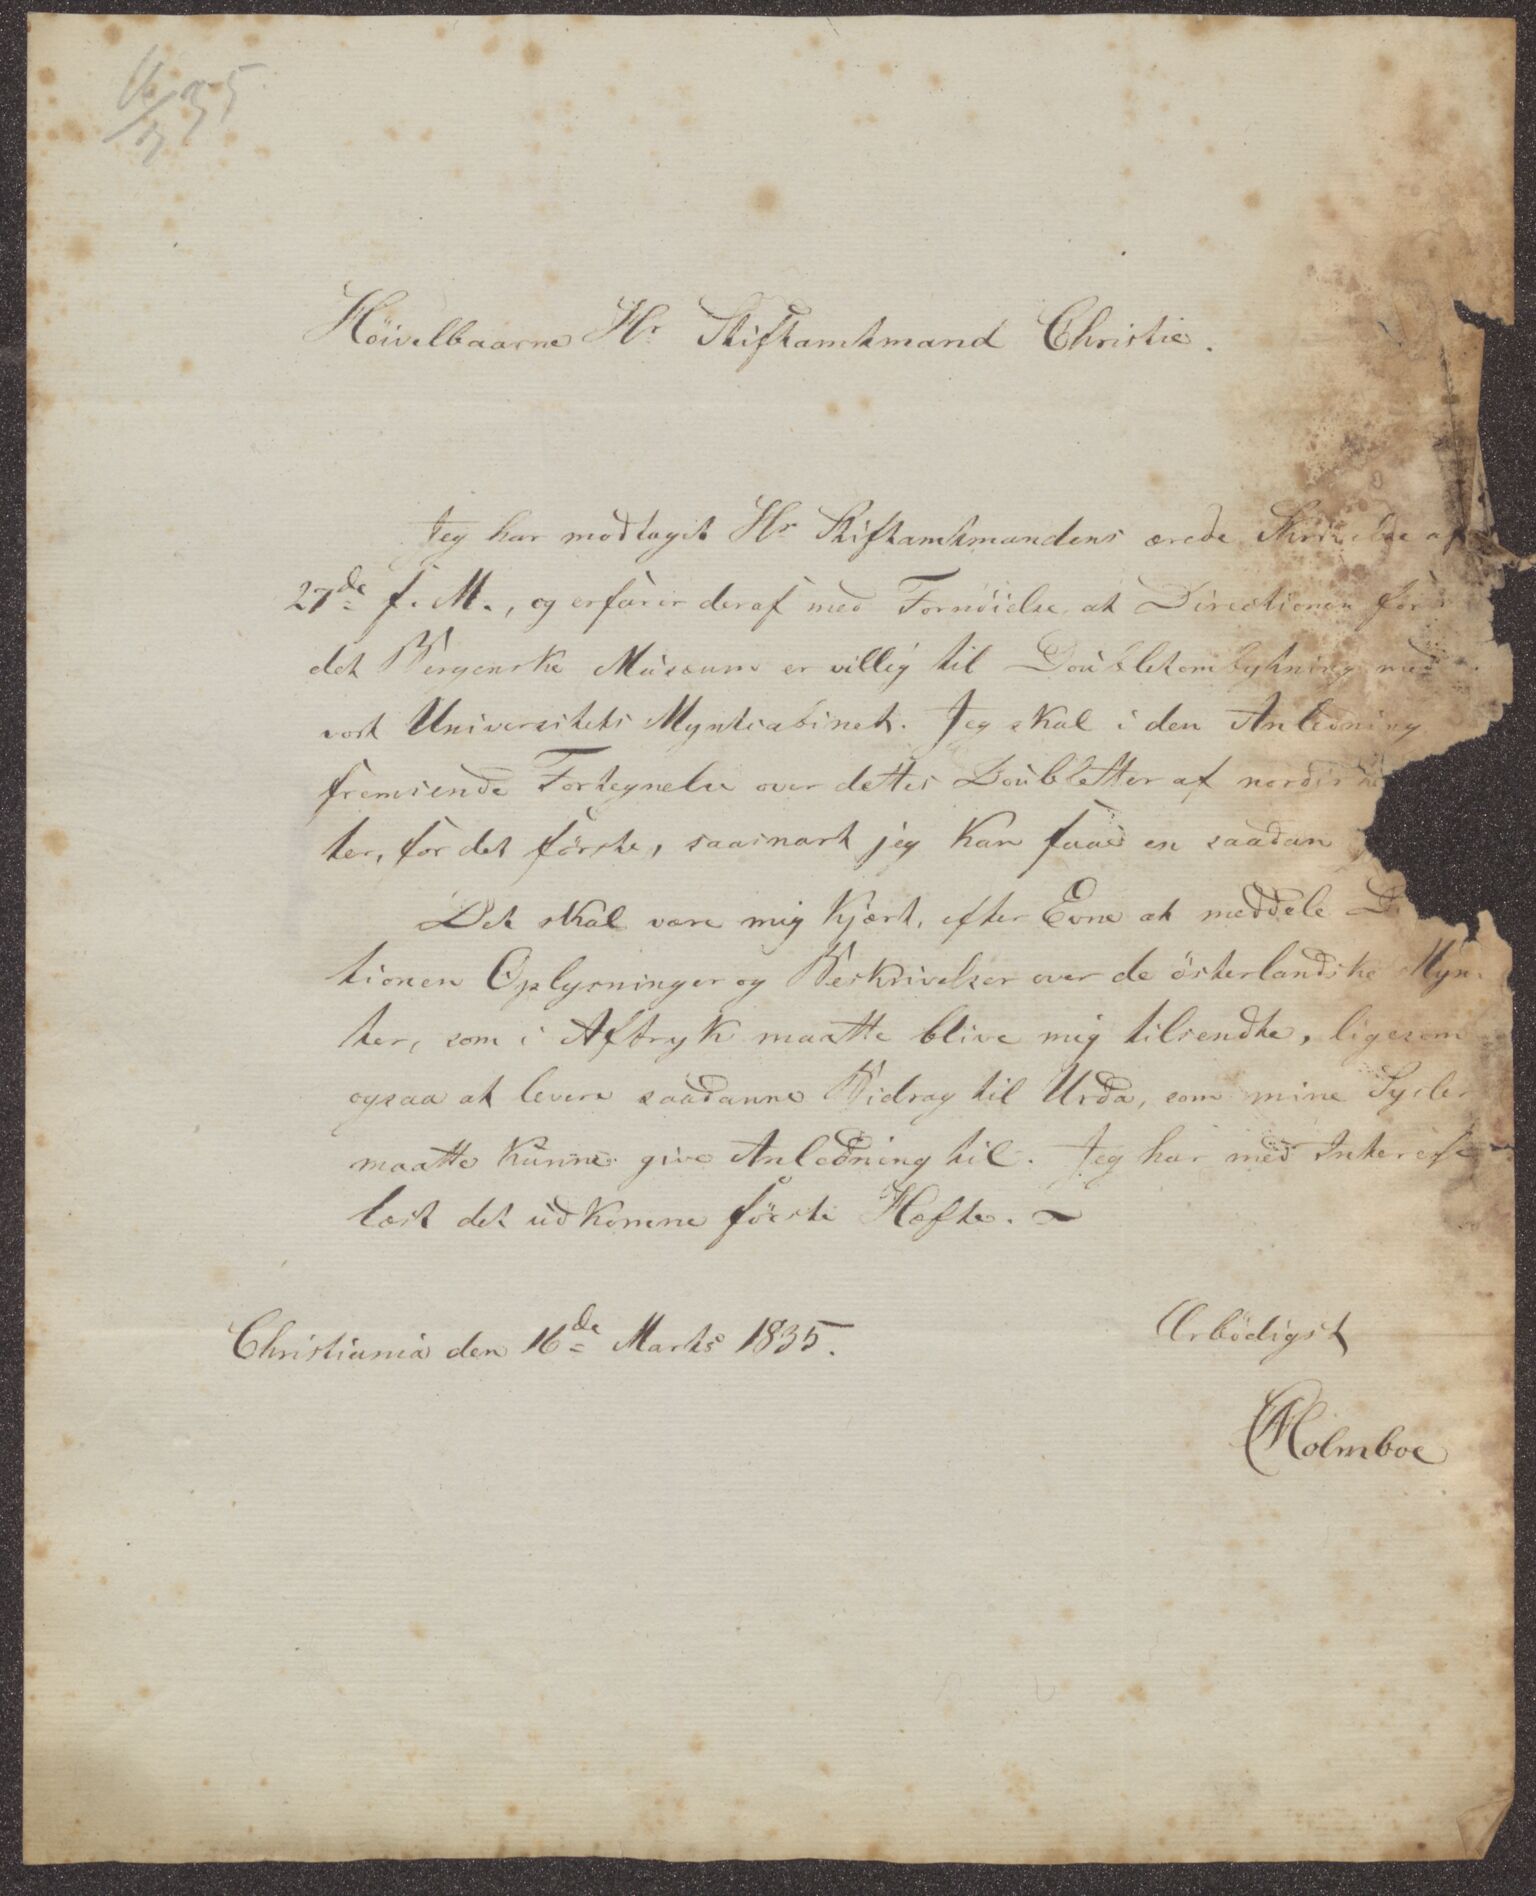 16/3 35
Höivelbaarne Hr Stiftamtmand Christie.
Jeg har modtaget Hr Stiftamtmandens ærede Skrivelse af
27de f. M., og erfarer deraf med Fornöielse, at Directionen for
det Bergenske Musæum er villig til Doubletombytning med
vort Universitets Myntcabinet. Jeg skal i den Anledning
fremsende Fortegnelse over dettes Doubletter af nordiske
ter, for det förste, saasnart jeg kan faae en saadan
Det skal være mig kjært, efter Evne at meddele
tionen Oplysninger og Beskrivelser over de österlandske Myn-
ter, som i Aftryk maatte blive mig tilsendte, ligesom
ogsaa at levere saadanne Bidrag til Urda, som mine Sysler
maatte kunne give Anledning til. Jeg har med Interesse
læst det udkomne förste Hæfte. ~
Christiania den 16de Marts 1835.
Ærbödigst
CHolmboe